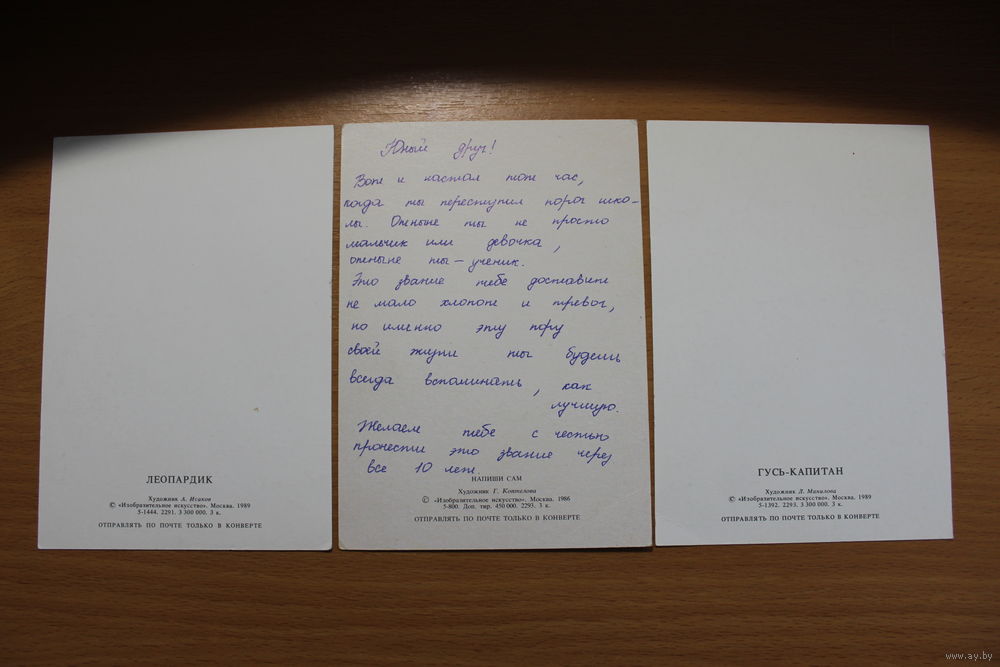 ЛЕОПАРДИК
Художник А. Исаков
© «Изобразительное искусство». Москва. 1989
5-1444. 2291. 3 300 000. 3 к.
ОТПРАВЛЯТЬ ПО ПОЧТЕ ТОЛЬКО В КОНВЕРТЕ
Юный друг!
Вот и настал тот час,
когда ты переступил порог шко-
лы. Отныне ты не просто
мальчик или девочка,
отныне ты — ученик.
Это звание тебе доставит
не мало хлопот и тревог,
но именно эту пору
своей жизни ты будешь
всегда вспоминать, как
лучшую.
Желаем тебе с честью
пронести это звание через
все 10 лет.
НАПИШИ САМ
Художник Г. Коптелова
© «Изобразительное искусство». Москва. 1986
5-800. Доп. тир. 450 000. 2293. 3 к.
ОТПРАВЛЯТЬ ПО ПОЧТЕ ТОЛЬКО В КОНВЕРТЕ
ГУСЬ-КАПИТАН
Художник Л. Манилова
© «Изобразительное искусство». Москва. 1989
5-1392. 2293. 3 300 000. 3 к.
ОТПРАВЛЯТЬ ПО ПОЧТЕ ТОЛЬКО В КОНВЕРТЕ
www.ay.by